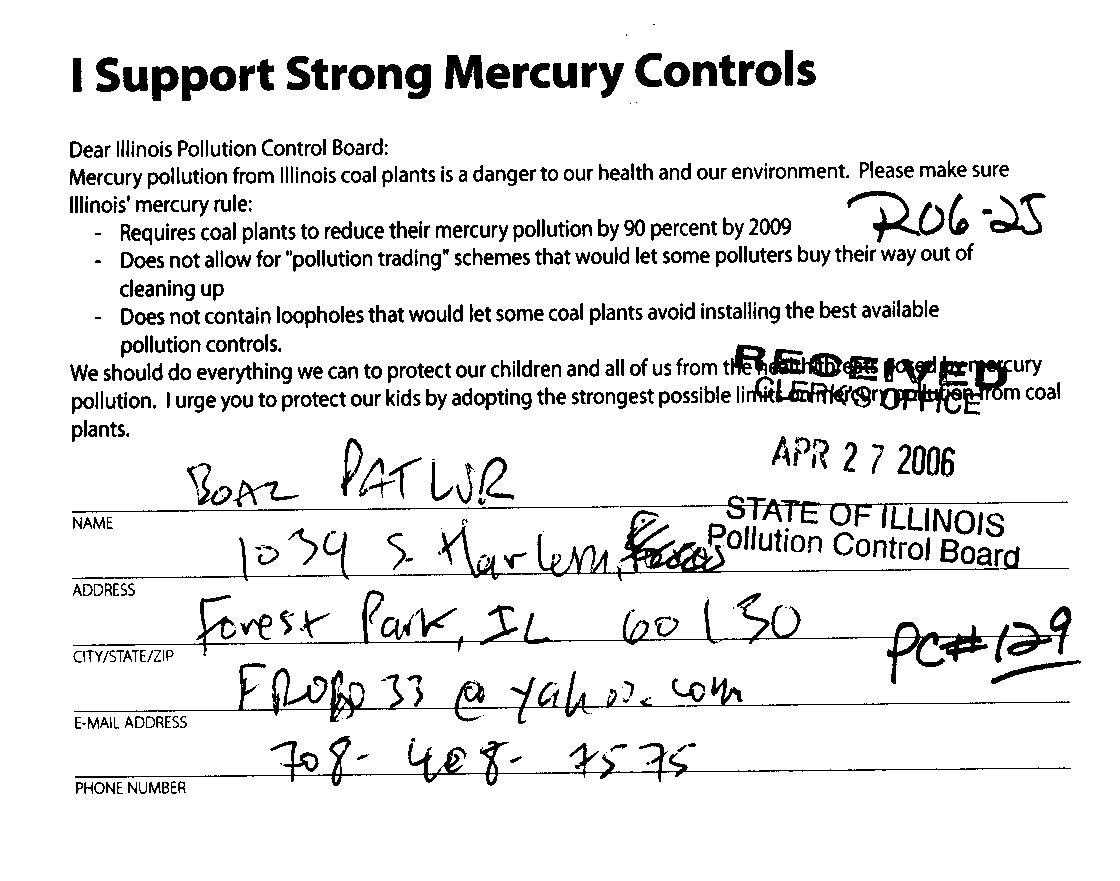 I Support Strong Mercury Controls
Dear Illinois Pollution Control Board:
Mercury pollution from Illinois coal plants is a danger to our health and our environment. Please make sure
Illinois' mercury rule:
R06-25
- Requires coal plants to reduce their mercury pollution by 90 percent by 2009
- Does not allow for "pollution trading" schemes that would let some polluters buy their way out of
cleaning up
- Does not contain loopholes that would let some coal plants avoid installing the best available
pollution controls.
We should do everything we can to protect our children and all of us from the health threats posed by mercury
RECEIVED
CLERK'S OFFICE
pollution. I urge you to protect our kids by adopting the strongest possible limits on mercury pollution from coal
plants.
APR 27 2006
BOAZ
NAME
STATE OF ILLINOIS
Pollution Control Board
1039 S. Harlem,
ADDRESS
Forest Park, IL 60130
CITY/STATE/ZIP
PC#129
@yahoo.com
E-MAIL ADDRESS
708-408-7575
PHONE NUMBER